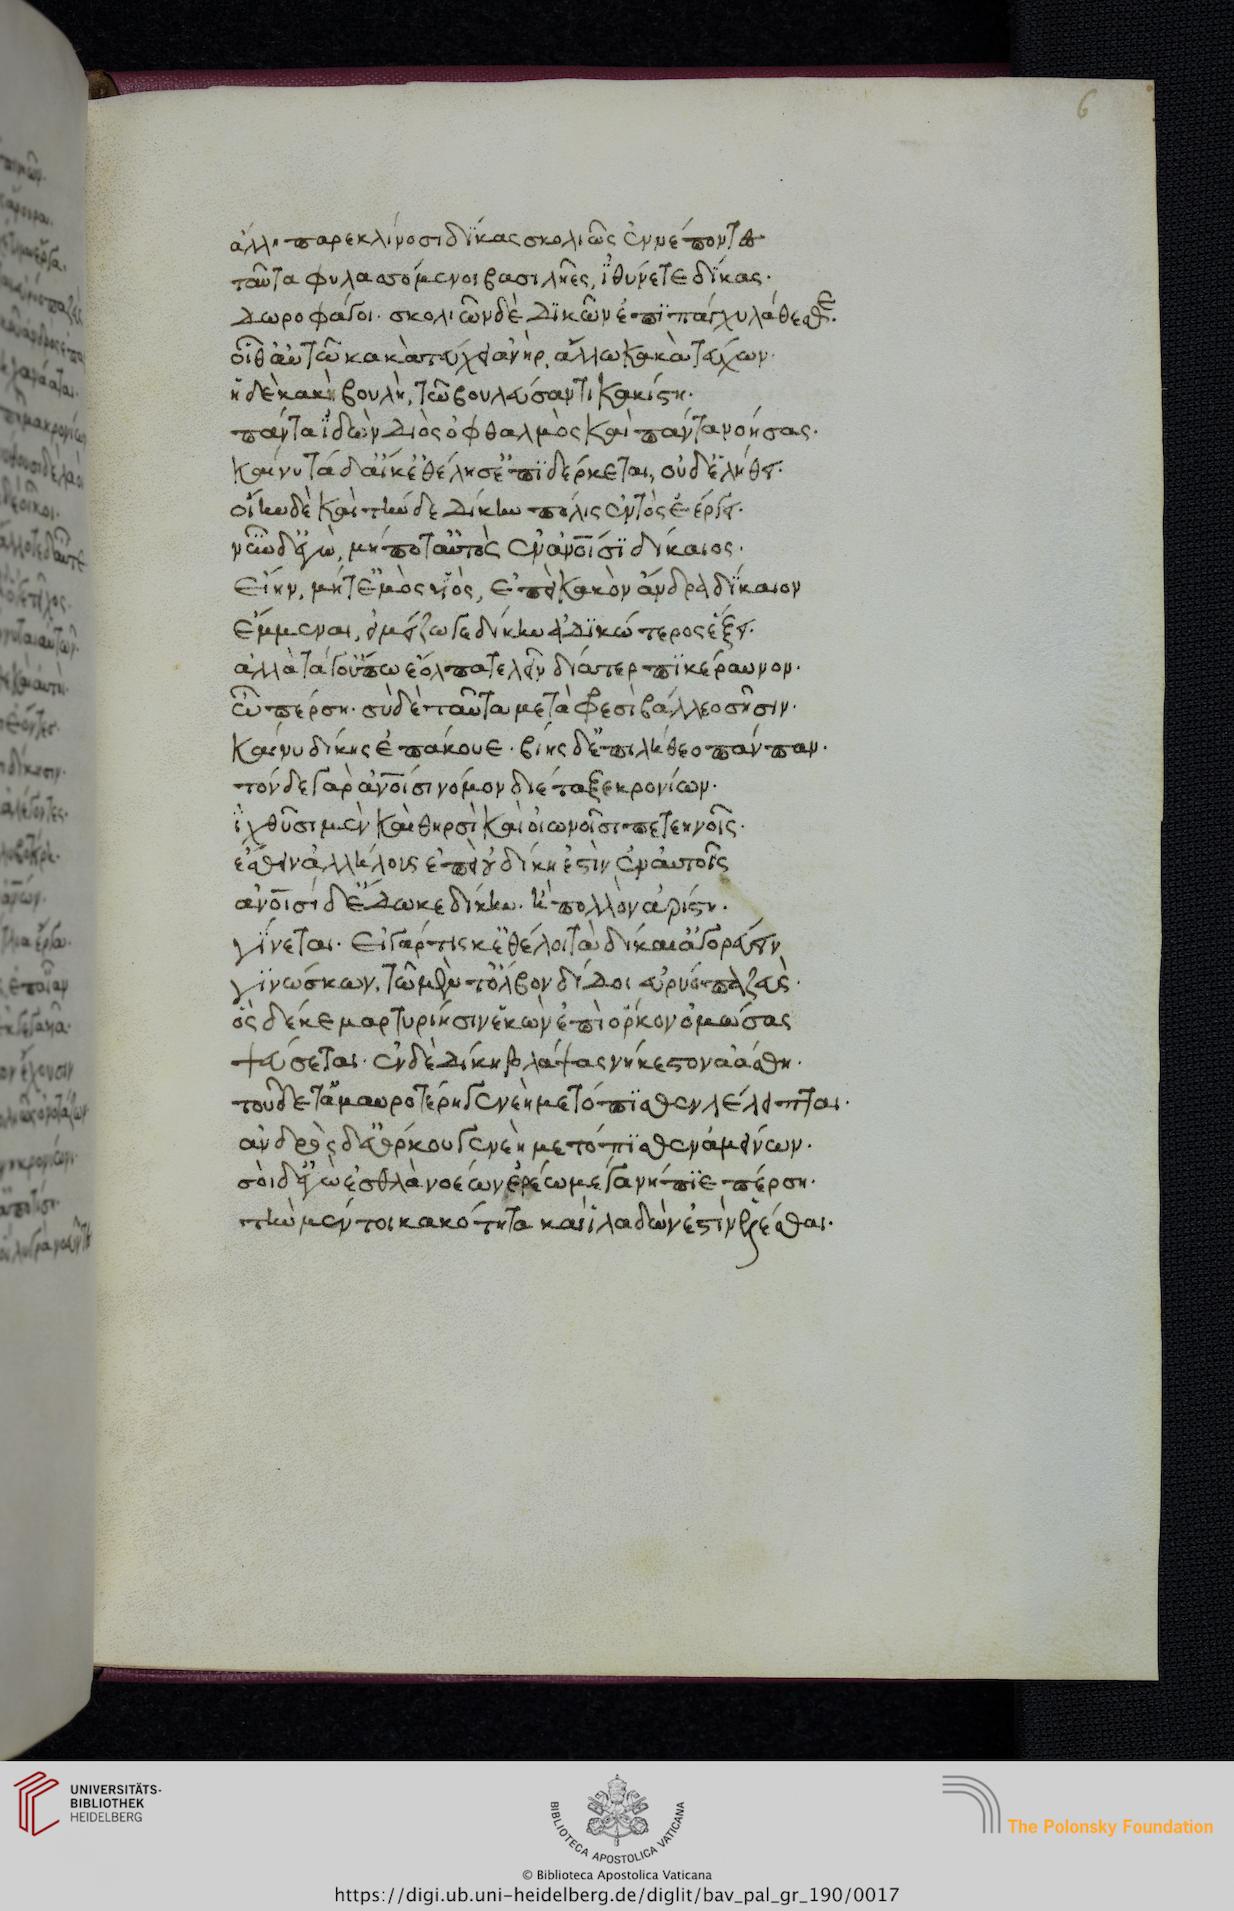 6
ἄλλῃ παρεκλίνοσι δίκας σκολιῶς ἐνέποντες
ταῦτα φυλασσόμενοι βασιλῆες, ἰθύνετε δίκας·
δωροφάγοι· σκολιῶν δὲ δικῶν ἐπὶ πάγχυ λάθεσθε·
οἷ θ' αὑτῶ κακὰ τεύχει ἀνὴρ, ἄλλω κακὰ τεύχων·
ἡ δὲ κακὴ βουλὴ, τῶ βουλεύσαντι κακίστη·
πάντα ἰδὼν Διὸς ὀφθαλμὸς καὶ πάντα νοήσας·
καί νυ τάδ' αἴ κ' ἐθέλησ' ἐπιδέρκεται, οὐδέ ἑ λήθει·
οἵην δὲ καὶ τήνδε δίκην πόλις ἐντὸς ἐέργει·
νῦν δ' ἐγὼ, μήποτ' αὐτὸς ἐν ἀνοῖσι δίκαιος·
εἴην, μήτ' ἐμὸς υἱὸς, ἐπεὶ κακὸν ἄνδρα δίκαιον
ἔμμεναι, εἰ μείζω γε δίκην ἀδικώτερος ἕξει·
ἀλλὰ τά γ' οὔπω ἔολπα τελεῖν δία τερπικέραυνον·
ὦ πέρση· σὺ δὲ ταῦτα μετὰ φρεσὶ βάλλεο σῆσιν·
καί νυ δίκης ἐπάκουε· βίης δ' ἐπιλήθεο πάνπαν·
τόνδε γὰρ ἀνοῖσι νόμον διέταξε κρονίων·
ἰχθῦσι μὲν καὶ θηρσὶ καὶ οἰωνοῖσι πετεηνοῖς·
ἔσθειν ἀλλήλους ἐπεὶ οὐ δίκη ἐστὶν ἐν αὐτοῖς
ἀνοῖσι δ' ἔδωκε δίκην· ἣ πολλὸν ἀρίστη·
γίνεται· εἰ γάρ τις κ' ἐθέλοι τὰ δίκαι' ἀγορεύειν
γινώσκων, τῶ μὲν τ' ὄλβον διδοῖ εὐρύοπα ζεὺς·
ὃς δέ κε μαρτυρίησιν ἑκὼν ἐπὶ ὅρκον ὀμώσας
ψεύσεται· ἐν δὲ δίκην βλάψας νήκεστον ἀάσθη·
τοῦ δέ τ' ἀμαυροτέρη γενεὴ μετόπισθεν λέλειπται·
ἀνδρὸς δ' εὐόρκου γενεὴ μετόπισθεν ἀμείνων·
σοὶ δ' ἐγὼ ἐσθλὰ νοέων ἐρέω μέγα νήπιε πέρση·
τὴν μέν τοι κακότητα καὶ ἰλαδὸν ἐστὶν ἑλέσθαι·
UNIVERSITÄTS-
BIBLIOTHEK
HEIDELBERG
BIBLIOTECA APOSTOLICA VATICANA
© Biblioteca Apostolica Vaticana
The Polonsky Foundation
https://digi.ub.uni-heidelberg.de/diglit/bav_pal_gr_190/0017